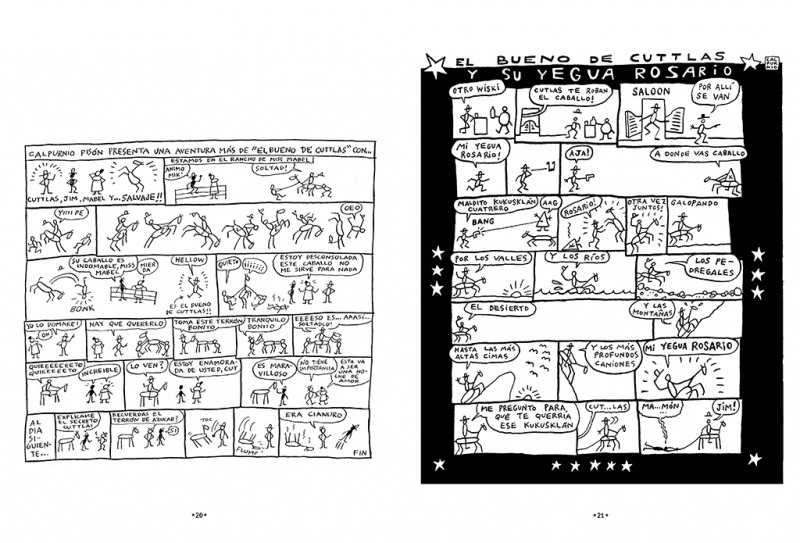 CALPURNIO PISÓN PRESENTA UNA AVENTURA MÁS DE "EL BUENO DE CUTTLAS" CON...
CUTTLAS, JIM, MABEL Y... SALVAJE!!
ESTAMOS EN EL RANCHO DE MISS MABEL
ANIMO
MIK
SOLTAD!
YIIII PE
OEO)
SU CABALLO ES
INDOMABLE, MISS
MABEL
MIER
DA
BONK
HELLOW
ES EL BUENO
DE CUTTLAS!!
QUIETO
ESTOY DESCONSOLADA
ESTE CABALLO NO
ME SIRVE PARA NADA
YO LO DOMARÉ!
OH
HAY QUE QUERERLO
TOMA ESTE TERRÓN
BONITO
TRANQUILO
BONITO
EEEESO ES... AAASI...
SOLTADLO!
QUIEEEEEEETO
QUIEEEEETO
INCREIBLE
LO VEN?
ESTOY ENAMORA-
DA DE USTED, CUT
ES MARA-
VILLOSO
NO TIENE
IMPORTANCIA
ESTA VA
A SER
UNA NO-
CHE DE
AMOR
AL
DIA
SI-
GUIEN-
TE...
EXPLICAME
EL SECRETO
CUTTLAS
RECUERDAS EL
TERRÓN DE AZUCAR?
SI
TOC
FLUMP
ERA CIANURO
FIN
*20*
EL BUENO DE CUTTLAS
Y SU YEGUA ROSARIO
CAL
PUR
NIO
OTRO WISKI
CUTLAS TE ROBAN
EL CABALLO!
SALOON
POR ALLÍ
SE VAN
MI YEGUA
ROSARIO!
AJA!
A DONDE VAS CABALLO
MALDITO KUKUSKLÁN
CUATRERO
BANG
AAG
ROSARIO!
OTRA VEZ
JUNTOS!
GALOPANDO
POR LOS VALLES
Y LOS RÍOS
LOS PE-
DREGALES
EL DESIERTO
Y LAS
MONTAÑAS
HASTA LAS MÁS
ALTAS CIMAS
Y LOS MÁS
PROFUNDOS
CANIONES
MI YEGUA ROSARIO
ME PREGUNTO PARA,
QUÉ TE QUERRIA
ESE KUKUSKLÁN
CUT...LAS
MA...MÓN
JIM!
*21*